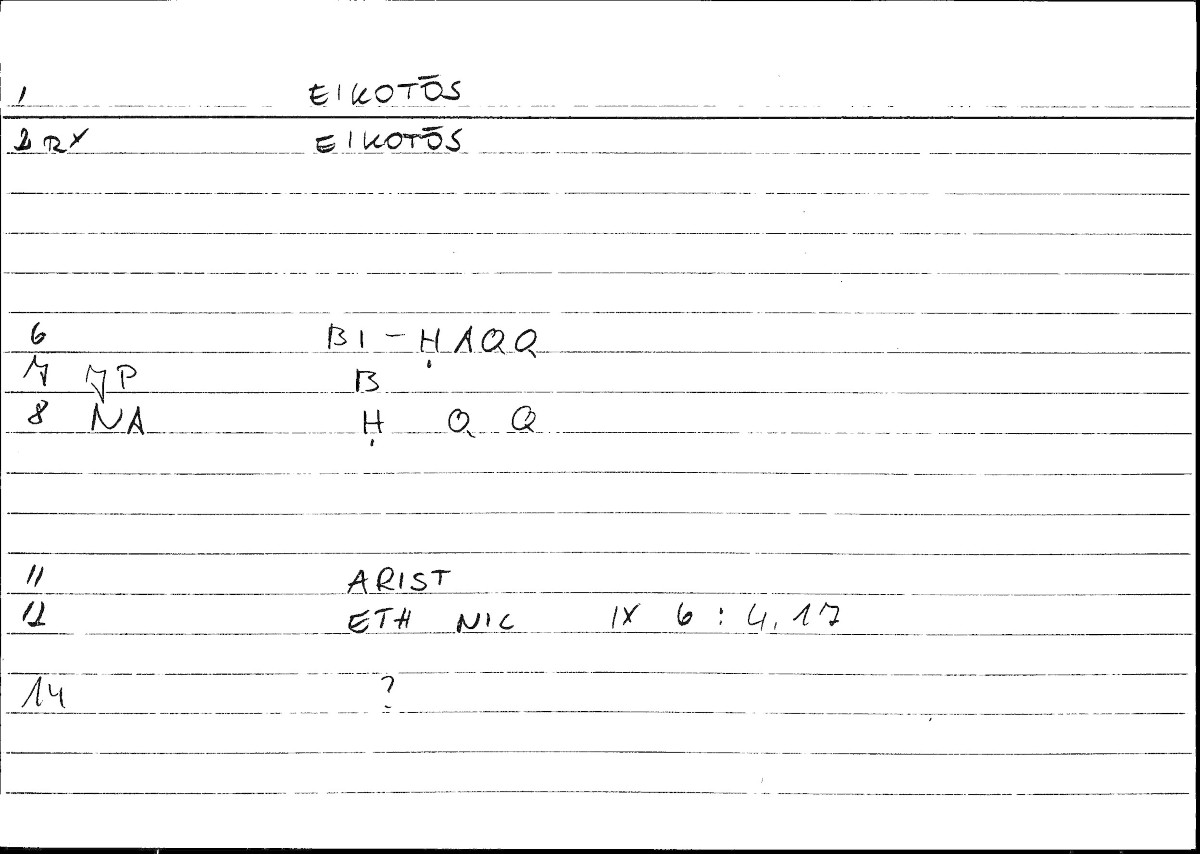 1 EIKOTŌS
2 RX EIKOTŌS
6 BI - ḤAQQ
7 JP B
8 NA Ḥ Q Q
11 ARIST
12 ETH NIC IX 6 : 4,17
14 ?